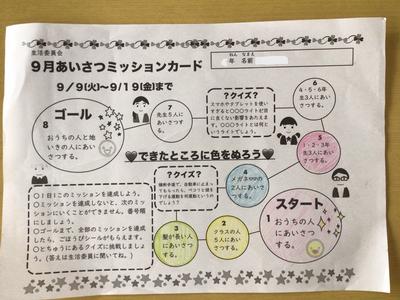 生活委員会
9月あいさつミッションカード
ねん なまえ
年 名前
9/9(火)~9/19(金)まで
ゴール
8
おうちの人と地
いきの人にあいさ
つする。
7
先生5人に
あいさつす
る。
?クイズ?
スマホやタブレットを使い
すぎると〇〇〇ライトが目
に良くない影響をあたえま
す。〇〇〇ライトとは何と
いうライトでしょう。
6
4・5・6年
生3人にあい
さつする。
5
1・2・3年
生3人にあい
さつする。
♥できたところに色をぬろう♥
〇1日1このミッションを達成しよう。
〇ミッションを達成しないと、次のミッシ
ョンにいくことができません。番号順
にしましょう。
〇ゴールまで、全部のミッションを達成
したら、ごほうびシールがもらえます。
〇とちゅうにあるクイズに挑戦しましょ
う。(答えは生活委員に聞いてね。)
?クイズ?
4
メガネの
2人にあいさ
つする。
3
髪が長い人
にあいさつ
する。
2
クラスの人
5人にあい
さつする。
スタート
1
おうちの人
にあいさつす
る。